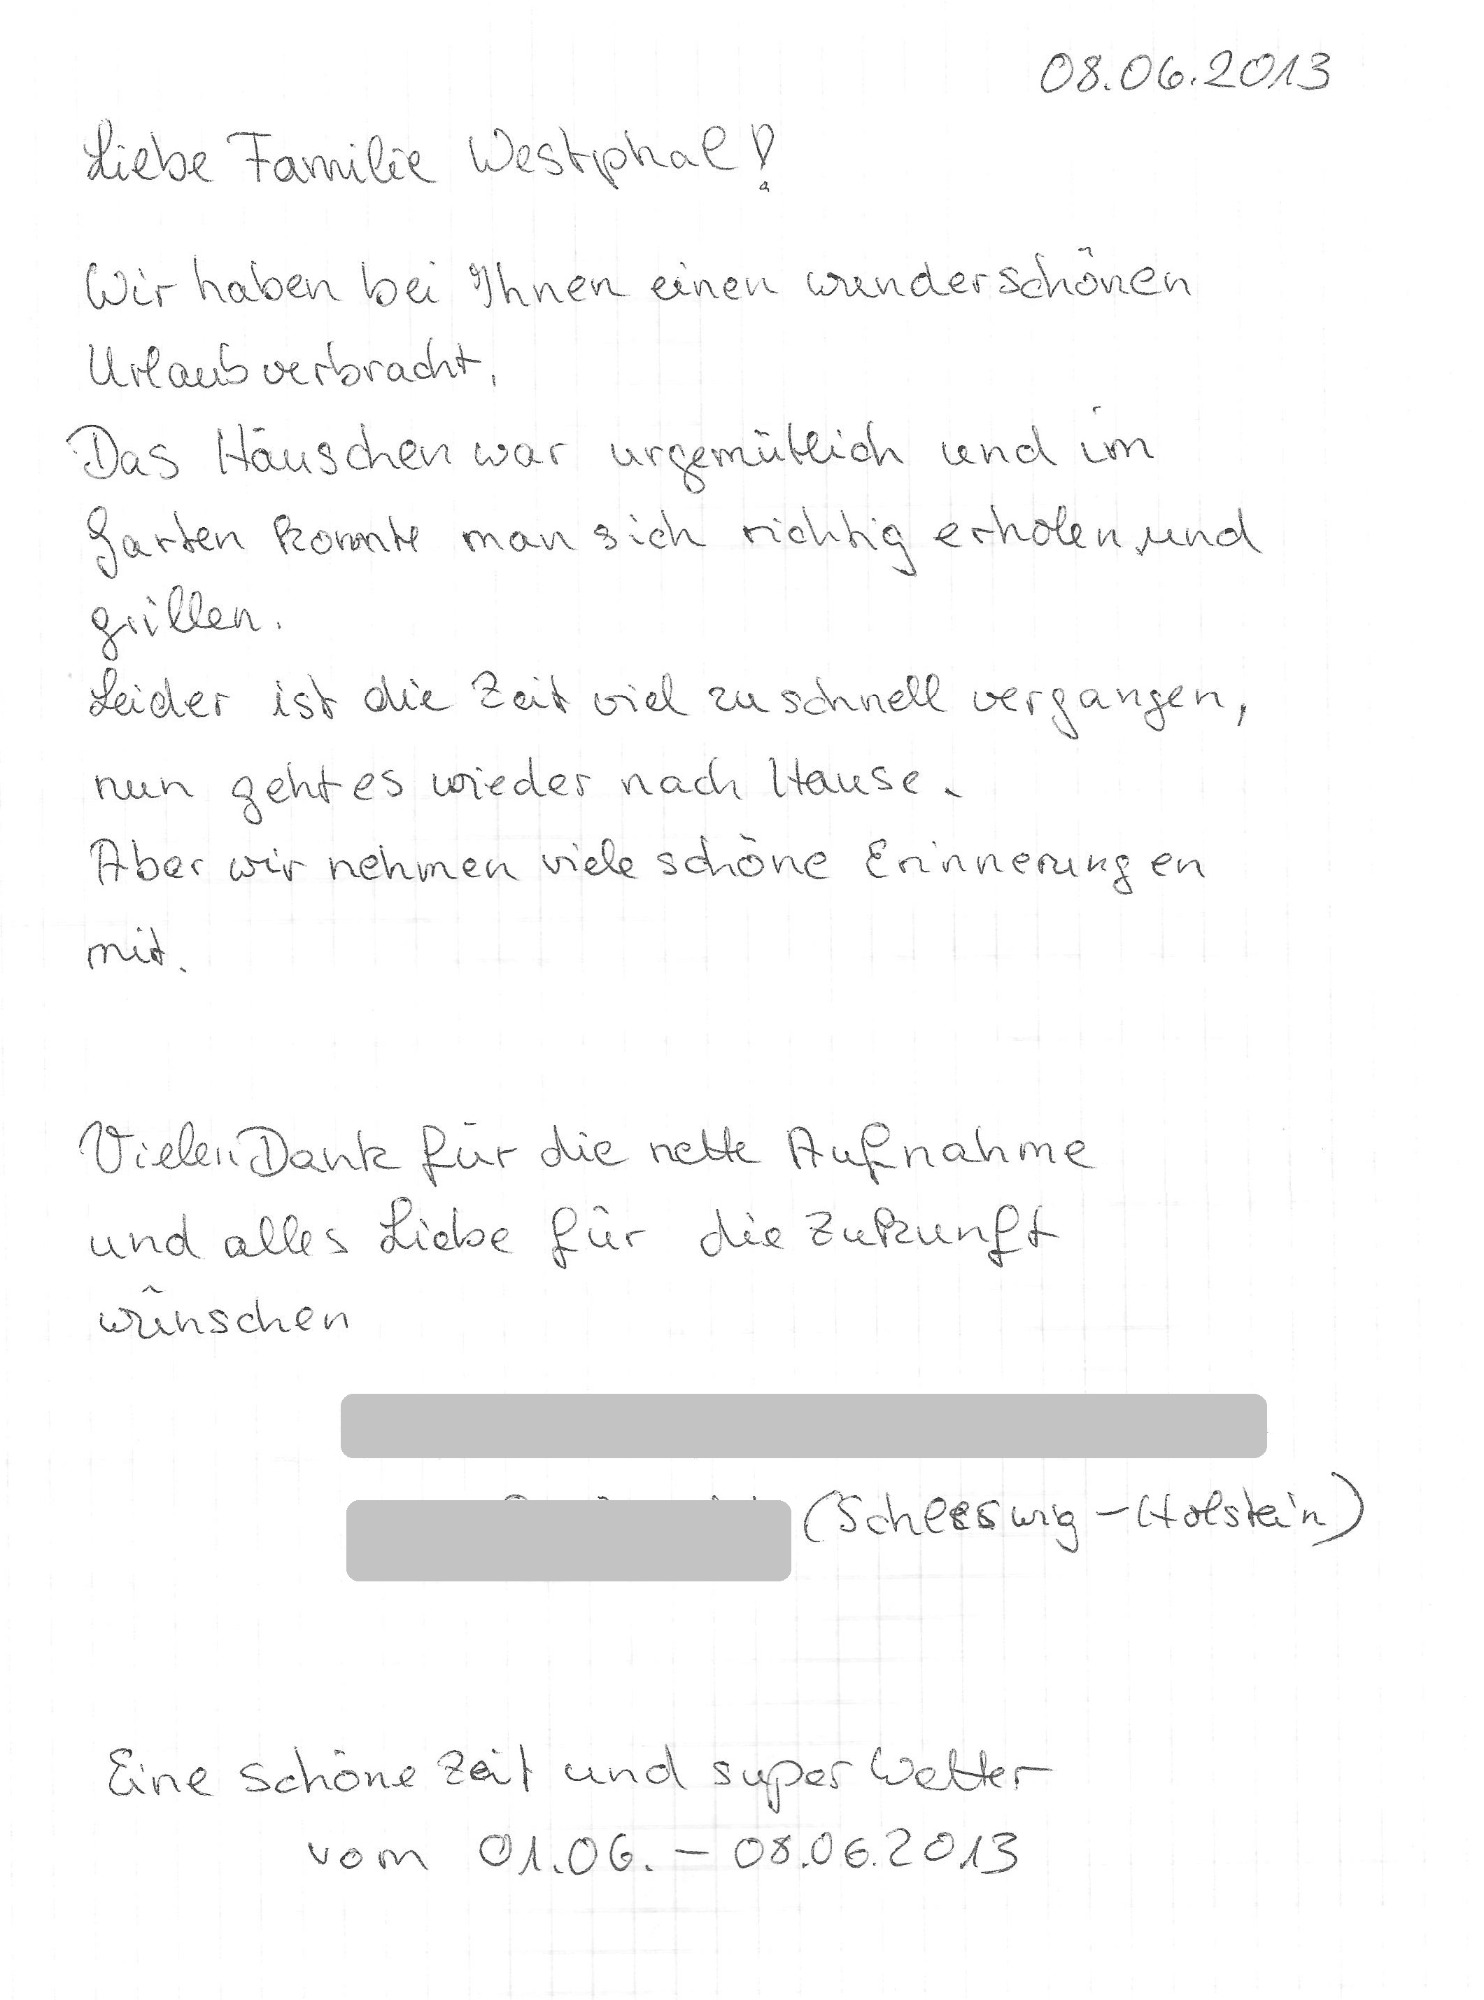 08.06.2013
Liebe Familie Westphal!
Wir haben bei Ihnen einen wunderschönen
Urlaub verbracht.
Das Häuschen war urgemütlich und im
Garten konnte man sich richtig erholen und
grillen.
Leider ist die Zeit viel zu schnell vergangen,
nun geht es wieder nach Hause.
Aber wir nehmen viele schöne Erinnerungen
mit.
Vielen Dank für die nette Aufnahme
und alles Liebe für die Zukunft
wünschen
(Schleswig-Holstein)
Eine schöne Zeit und super Wetter
vom 01.06. - 08.06.2013